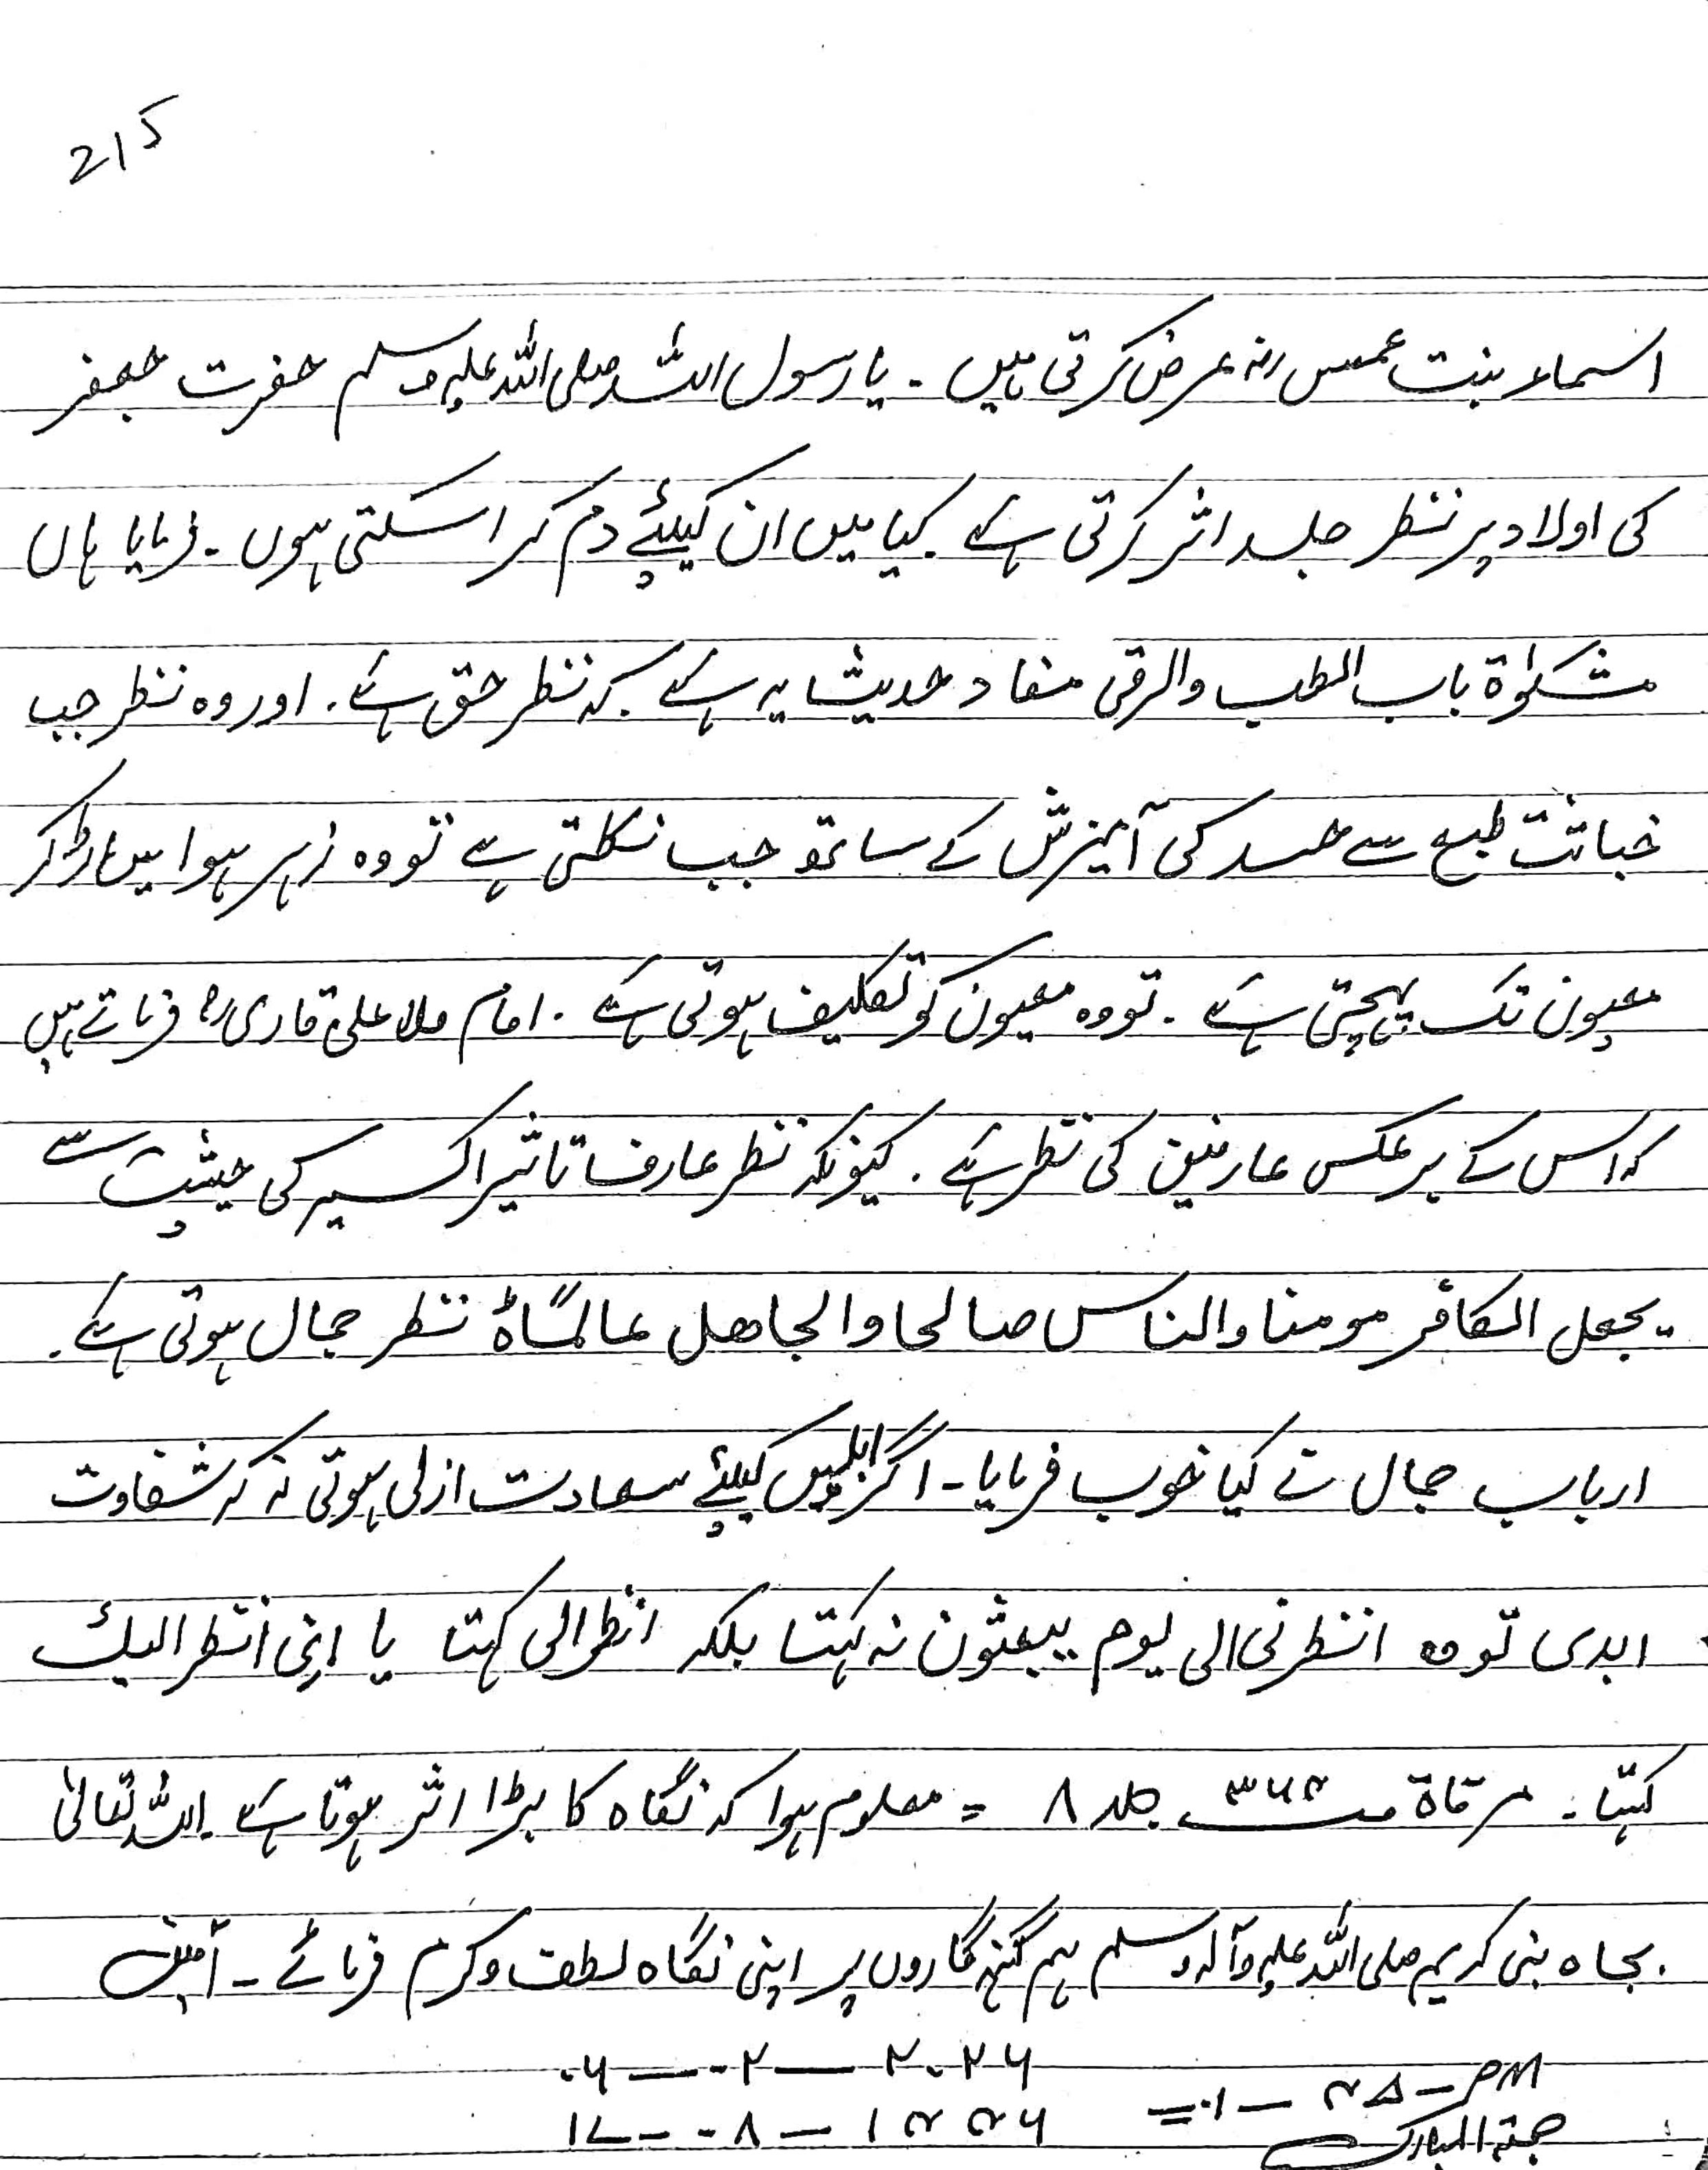 215
اسماء بنت عمیس رضہ عرض کرتی ہیں ۔ یا رسول اللہ صلی اللہ علیہ وسلم حضرت جعفر
کی اولاد پر نظر جلد اثر کرتی ہے کیا میں ان کیلئے دم کرا سکتی ہوں ۔ فرمایا ہاں
مشکوٰۃ باب الطب والرقی مفاد حدیث یہ ہے کہ نظر حق ہے ۔ اور وہ نظر جب
خباثت طبع سے حسد کی آمیزش کے ساتھ جب نکلتی ہے تو وہ زہر ہوا میں اڑ کر
معیون تک پہچتی ہے ۔ تو وہ معیون کو تکلیف ہوتی ہے ۔ امام ملا علی قاری رہ فرماتے ہیں
کہ اس کے بر عکس عارفین کی نظر ہے ۔ کیونکہ نظر عارف تاثیر اکسیر کی حیثیت سے
یجعل الکافر مومنا والناس صالحا والجاھل عالماً نظر جمال ہوتی ہے ۔
ارباب جمال نے کیا خوب فرمایا ۔ اگر ابلیس کیلئے سعادت ازلی ہوتی نہ کہ شقاوت
ابدی تو وہ انظرنی الی یوم یبعثون نہ کہتا بلکہ انظر الی کہتا یا ارنی انظر الیک
کہتا ۔ مرقاۃ صـ ۳۶۴ جلد ۸ = معلوم ہوا کہ نگاہ کا بڑا اثر ہوتا ہے اللہ تعالیٰ
بجاہ نبی کریم صلی اللہ علیہ وآلہ وسلم ہم گنہگاروں پر اپنی نگاہ لطف و کرم فرمائے ۔ آمین
۰۶ — ۰۲ — ۲۰۲۶
PM — ۴۵ — ۰۱ =
۱۷ — ۰۸ — ۱۴۴۷
جمعۃ المبارک